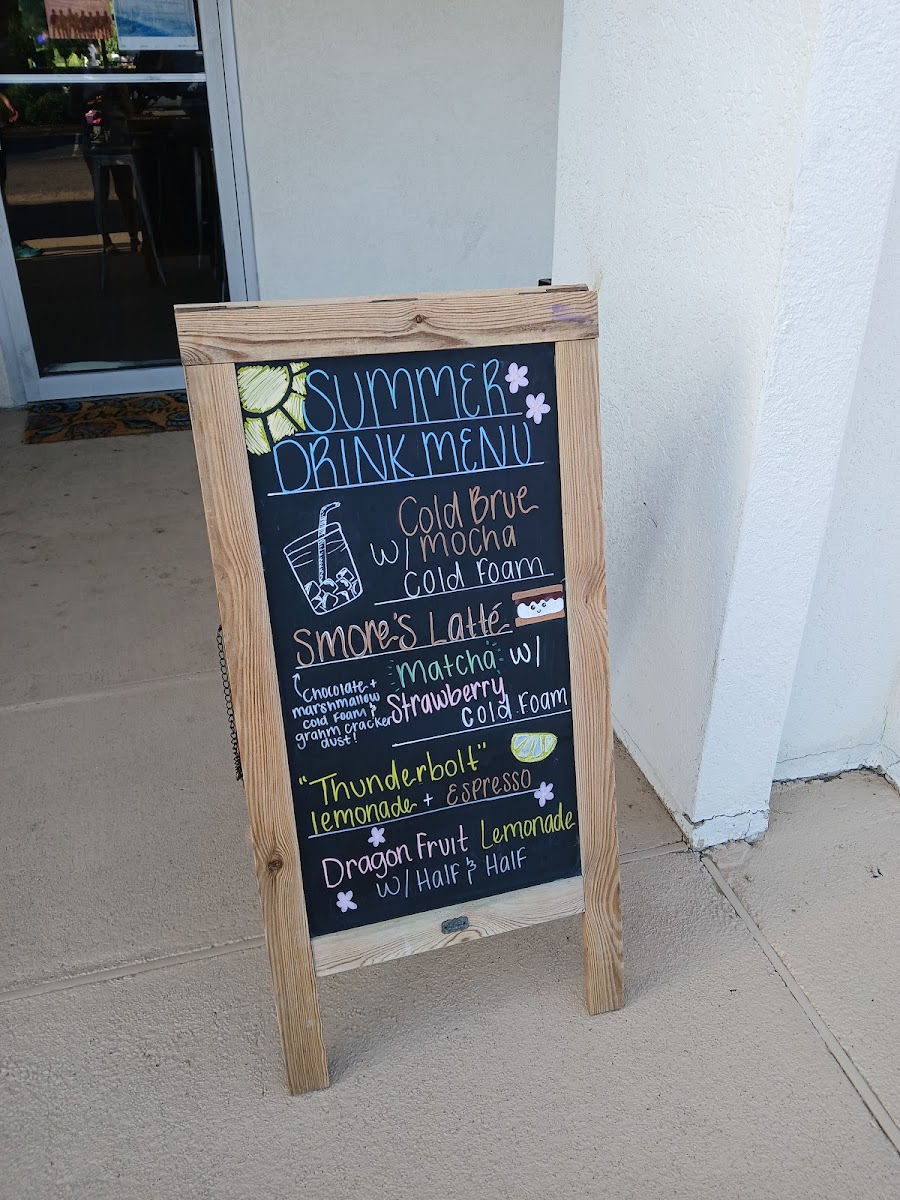 SUMMER
DRINK MENU
Cold Brue
w/ mocha
cold Foam
Smore's Latté
Chocolate +
marshmallow
cold Foam &
grahm cracker
dust!
Matcha w/
Strawberry
cold Foam
"Thunderbolt"
lemonade + Espresso
Dragon Fruit Lemonade
w/ Half & Half